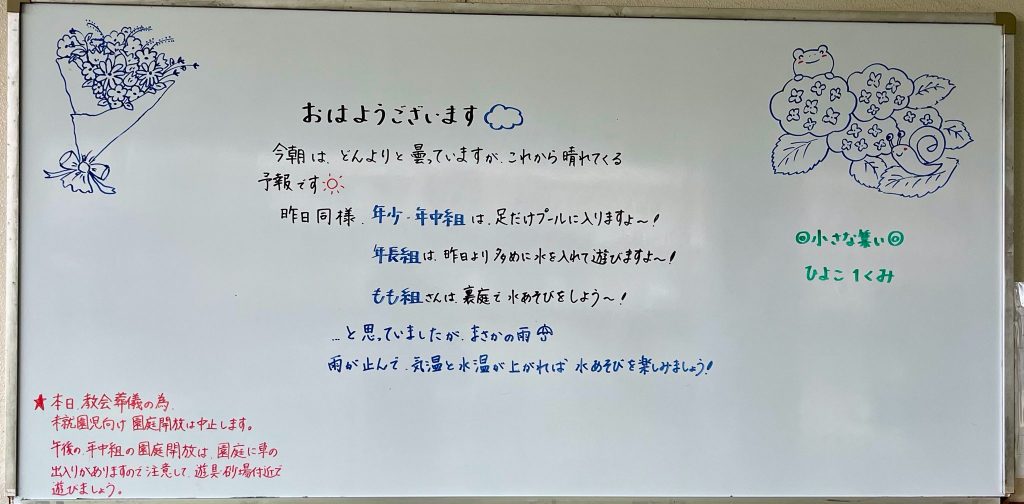 おはようございます
今朝は、どんよりと曇っていますが、これから晴れてくる
予報です
昨日同様、年少・年中組は、足だけプールに入りますよ〜!
年長組は、昨日より多めに水を入れて遊びますよ〜!
もも組さんは、裏庭で水あそびをしよう〜!
…と思っていましたが、まさかの雨
雨が止んで、気温と水温が上がれば水あそびを楽しみましょう!
◎小さな集い◎
ひよこ1くみ
★本日、教会葬儀の為、
未就園児向け園庭開放は中止します。
午後の、年中組の園庭開放は、園庭に車の
出入りがありますので注意して、遊具・砂場付近で
遊びましょう。